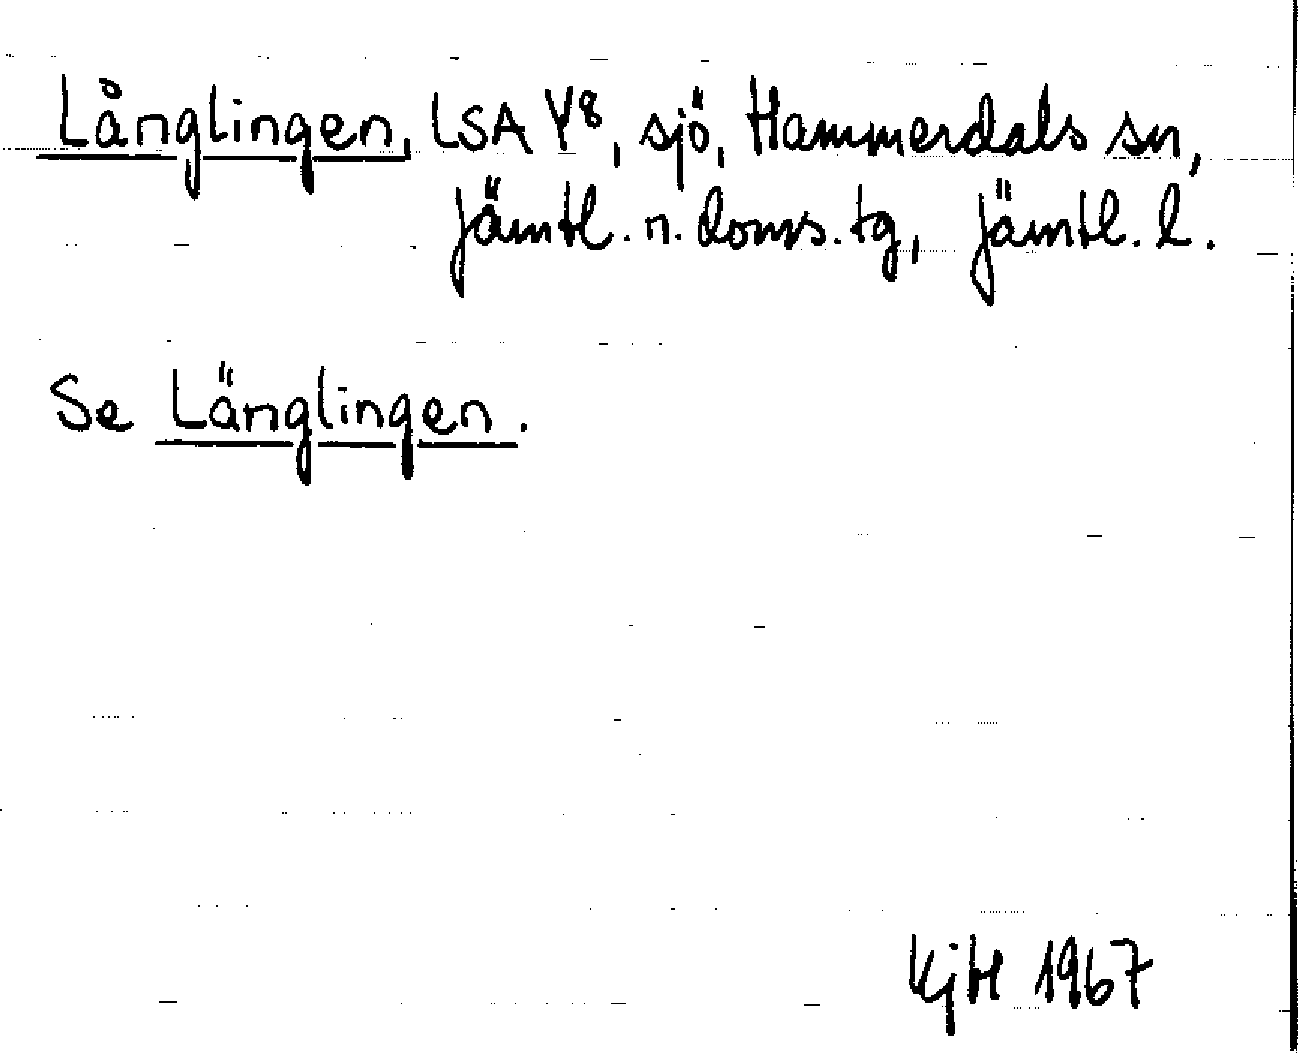 Långlingen, LSA Y8, sjö, Hammerdals sn,
Jämtl. n. doms. tg, Jämtl. l.
Se Länglingen.
KjH 1967